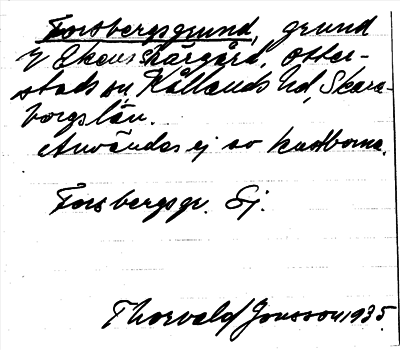 Forsbergsgrund, grund
i Ekens Skärgård, Otter-
stads sn, Kållands hd, Skara-
borgs län.
Användes ej av kustborna.
Forsbergsgr. Sj.
Thorvald Jonsson 1935